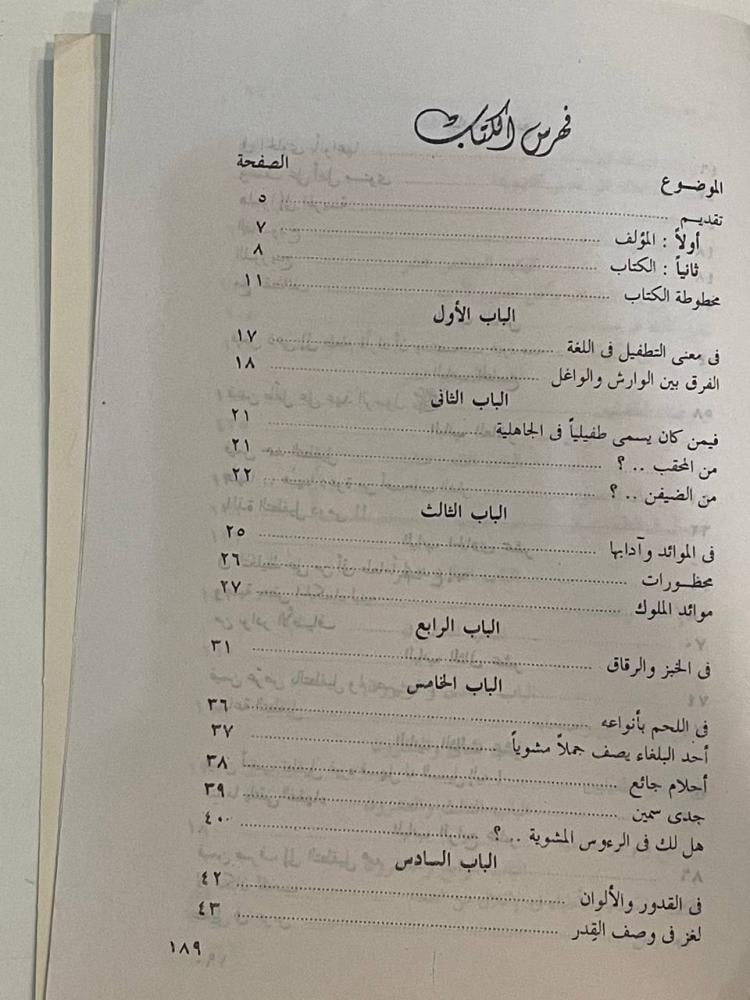 فهرس الكتاب
الموضوع الصفحة
تقديم ........ ٥
أولاً : المؤلف ........ ٧
ثانياً : الكتاب ........ ٨
مخطوطة الكتاب ........ ١١
الباب الأول
فى معنى التطفيل فى اللغة ........ ١٧
الفرق بين الوارش والواغل ........ ١٨
الباب الثانى
فيمن كان يسمى طفيلياً فى الجاهلية ........ ٢١
من المحقب .. ؟ ........ ٢١
من الضيفن .. ؟ ........ ٢٢
الباب الثالث
فى الموائد وآدابها ........ ٢٥
محظورات ........ ٢٦
موائد الملوك ........ ٢٧
الباب الرابع
فى الخبز والرقاق ........ ٣١
الباب الخامس
فى اللحم بأنواعه ........ ٣٦
أحد البلغاء يصف جملاً مشوياً ........ ٣٧
أحلام جائع ........ ٣٨
جدى سمين ........ ٣٩
هل لك فى الرءوس المشوية .. ؟ ........ ٤٠
الباب السادس
فى القدور والألوان ........ ٤٢
لغز فى وصف القِدر ........ ٤٣
١٨٩